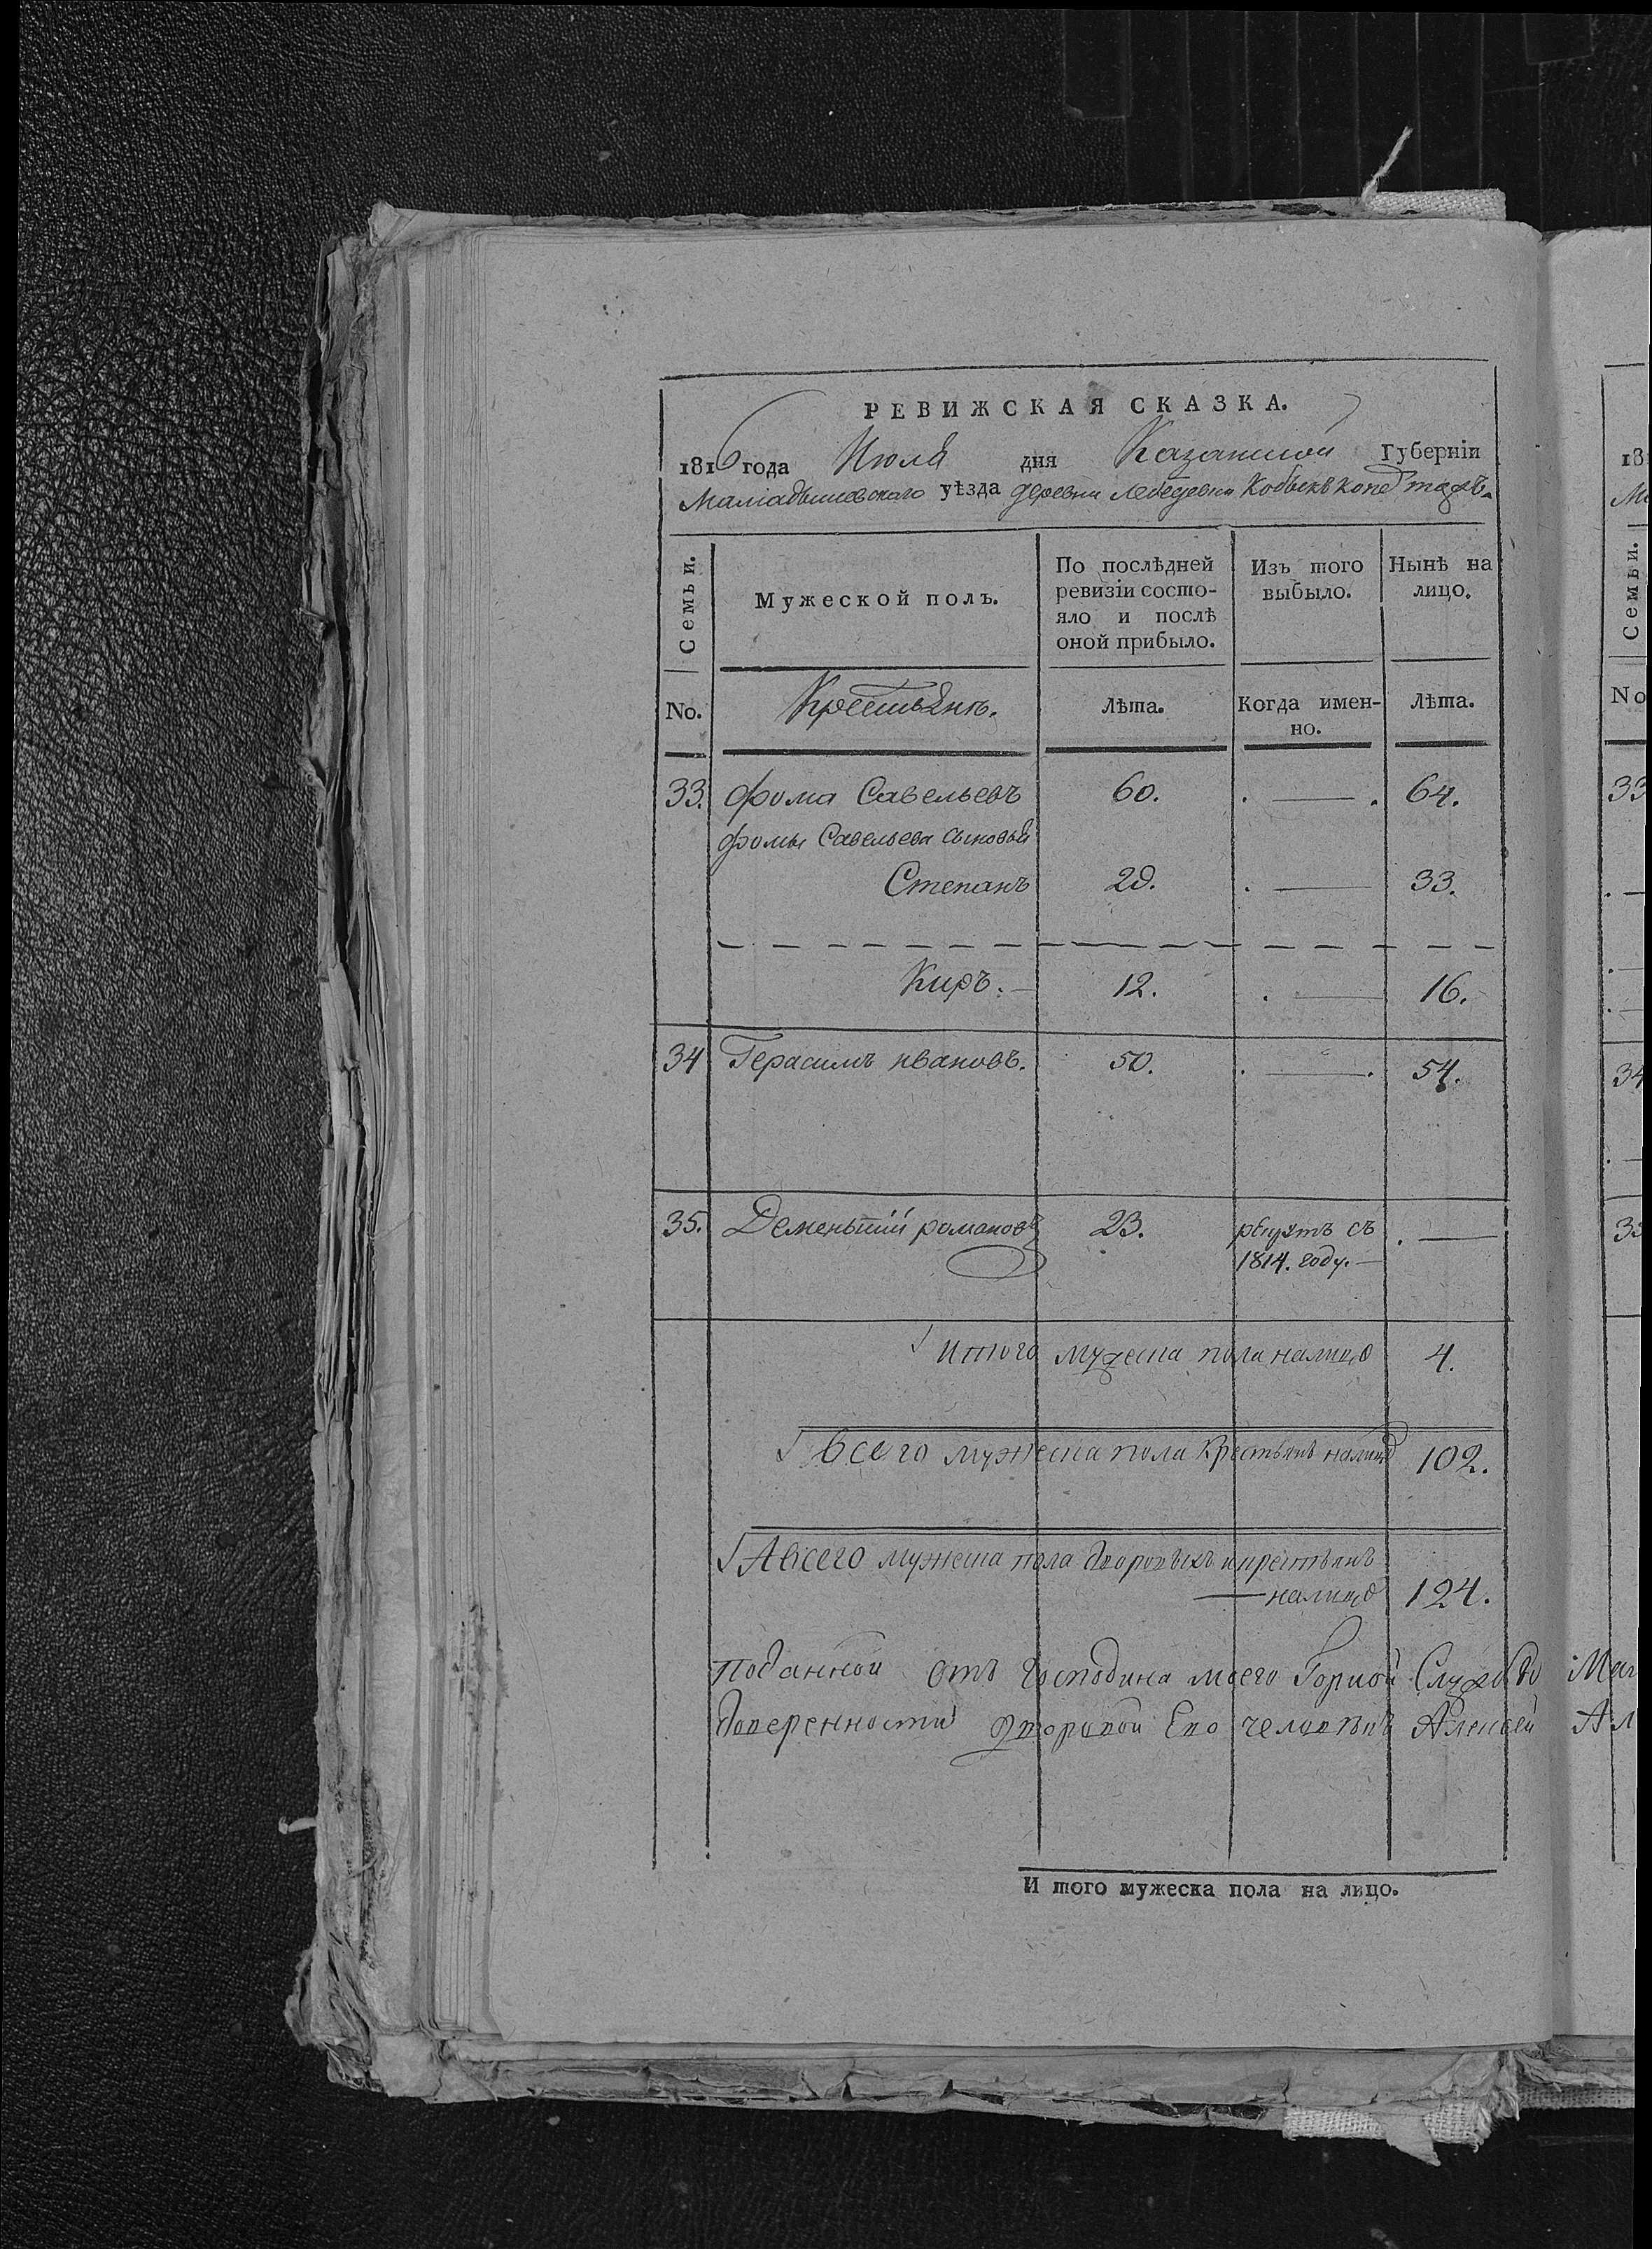 РЕВИЖСКАЯ СКАЗКА.
1816 года Июля дня Казанской Губерніи
Мамадышевскаго уѣзда деревни Лебедевки Кобыкъ Копе тожъ.
Семьи.
Мужеской полъ.
По послѣдней ревизіи состо-
яло и послѣ
оной прибыло.
Изъ того
выбыло.
Нынѣ на
лицо.
No.
Крестьянъ.
Лѣта.
Когда имен-
но.
Лѣта.
33. Фома Савельевъ 60. . — . 64.
Фомы Савельева сыновья
Степанъ 29. . — 33.
Киръ. — 12. . — 16.
34 Герасимъ ивановъ. 50. . — . 54.
35. Дементий романовъ 23. рекрутъ съ . —
1814. году. —
Итого мужеска пола налицо 4.
Всего мужеска пола крестьянъ налицо 102.
А всего мужеска пола дворовыхъ и крестьянъ
— налицо 124.
Поданной отъ Господина моего
доверенности дворовой Ево человекъ Алексей
И того мужеска пола на лицо.
18
Семьи.
No
33
34